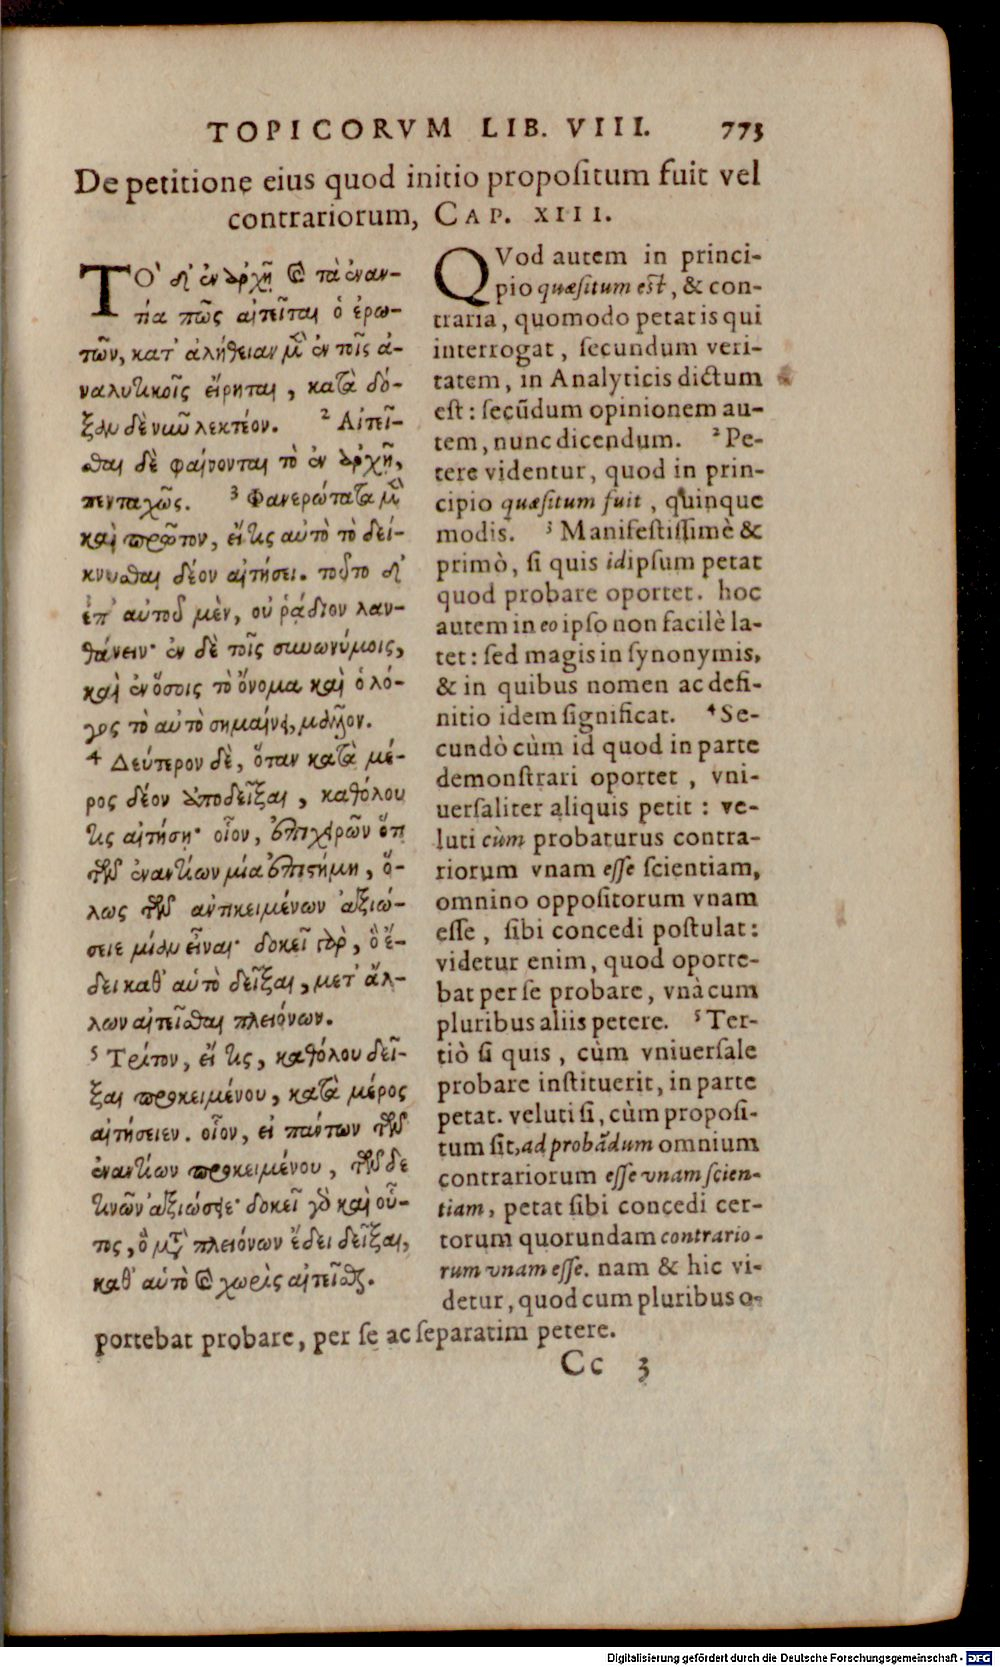 TOPICORVM LIB. VIII. 773
De petitione eius quod initio propositum fuit vel
contrariorum, CAP. XIII.
ΤΟ' δ' ἐν ἀρχῇ καὶ τὰ ἐναν-
τία πῶς αἰτεῖται ὁ ἐρω-
τῶν, κατ' ἀλήθειαν μὲν ἐν τοῖς ἀ-
ναλυτικοῖς εἴρηται, κατὰ δό-
ξαν δὲ νῦν λεκτέον. 2 Αἰτεῖ-
σθαι δὲ φαίνονται τὸ ἐν ἀρχῇ,
πενταχῶς. 3 Φανερώτατα μὲν
καὶ πρῶτον, εἴ τις αὐτὸ τὸ δεί-
κνυσθαι δέον αἰτήσει. τοῦτο δ'
ἐπ' αὐτοῦ μὲν, οὐ ῥάδιον λαν-
θάνειν· ἐν δὲ τοῖς συνωνύμοις,
καὶ ἐν ὅσοις τὸ ὄνομα καὶ ὁ λό-
γος τὸ αὐτὸ σημαίνει, μᾶλλον.
4 Δεύτερον δὲ, ὅταν κατὰ μέ-
ρος δέον ἀποδεῖξαι, καθόλου
τις αἰτήσῃ· οἷον, ἐπιχειρῶν ὅτι
τῶν ἐναντίων μία ἐπιστήμη, ὅ-
λως τῶν ἀντικειμένων ἀξιώ-
σειε μίαν εἶναι· δοκεῖ γὰρ, ὃ ἔ-
δει καθ' αὑτὸ δεῖξαι, μετ' ἄλ-
λων αἰτεῖσθαι πλειόνων.
5 Τρίτον, εἴ τις, καθόλου δεῖ-
ξαι προκειμένου, κατὰ μέρος
αἰτήσειεν. οἷον, εἰ πάντων τῶν
ἐναντίων προκειμένου, τῶνδε
τινῶν ἀξιώσειε· δοκεῖ γὸ καὶ οὗ-
τος, ὃ μετὰ πλειόνων ἔδει δεῖξαι,
καθ' αὑτὸ καὶ χωρὶς αἰτεῖσθαι.
QVod autem in princi-
pio quæsitum est, & con-
traria, quomodo petat is qui
interrogat, secundum veri-
tatem, in Analyticis dictum
est: secūdum opinionem au-
tem, nunc dicendum. 2 Pe-
tere videntur, quod in prin-
cipio quæsitum fuit, quinque
modis. 3 Manifestissimè &
primò, si quis id ipsum petat
quod probare oportet. hoc
autem in eo ipso non facilè la-
tet: sed magis in synonymis,
& in quibus nomen ac defi-
nitio idem significat. 4 Se-
cundò cùm id quod in parte
demonstrari oportet, vni-
uersaliter aliquis petit: ve-
luti cùm probaturus contra-
riorum vnam esse scientiam,
omnino oppositorum vnam
esse, sibi concedi postulat:
videtur enim, quod oporte-
bat per se probare, vnà cum
pluribus aliis petere. 5 Ter-
tiò si quis, cùm vniuersale
probare instituerit, in parte
petat. veluti si, cùm proposi-
tum sit, ad probādum omnium
contrariorum esse vnam scien-
tiam, petat sibi concedi cer-
torum quorundam contrario-
rum vnam esse. nam & hic vi-
detur, quod cum pluribus o-
portebat probare, per se ac separatim petere.
Cc 3
Digitalisierung gefördert durch die Deutsche Forschungsgemeinschaft - DFG